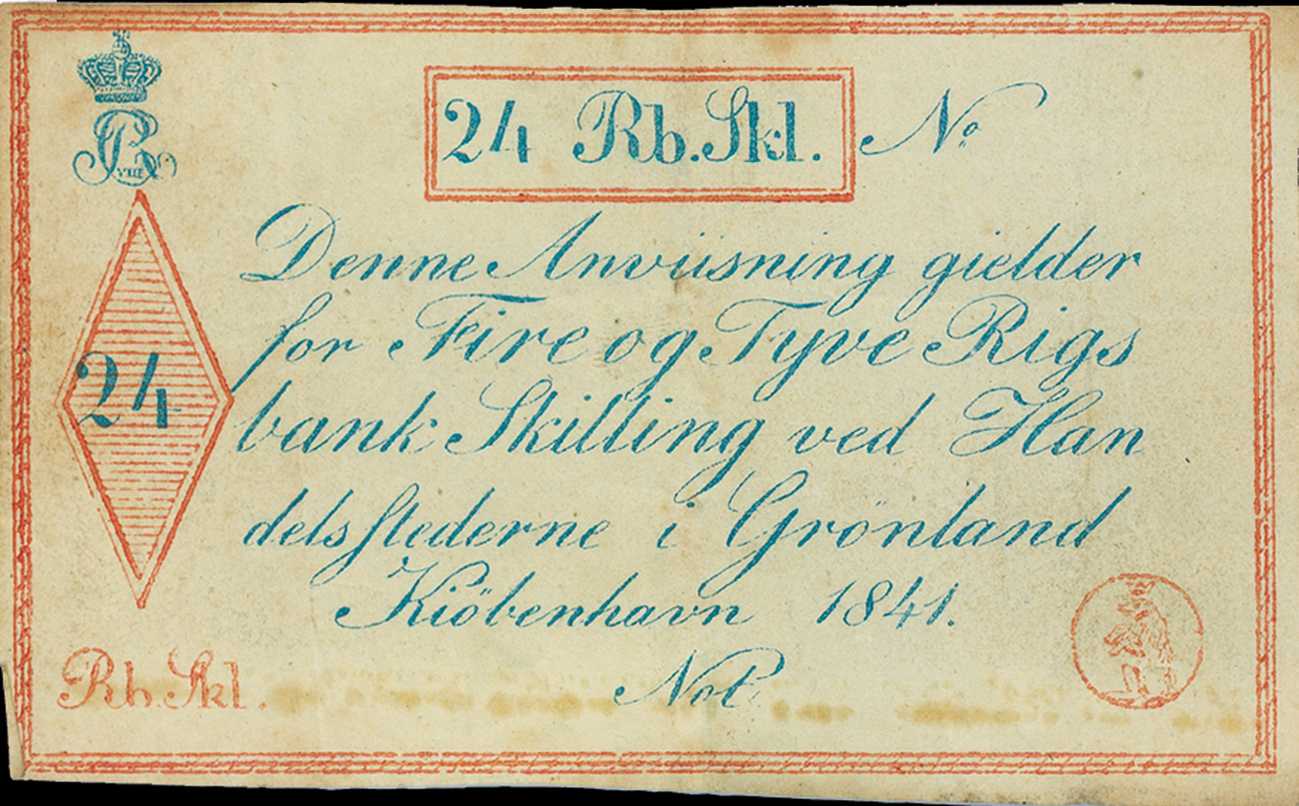 24 Rb.Skl. No
VIII
Denne Anviisning gielder
for Fire og Tyve Rigs
24
bank Skilling ved Han
dels stederne i Grönland
Kiöbenhavn 1841.
Rb.Skl. Not.